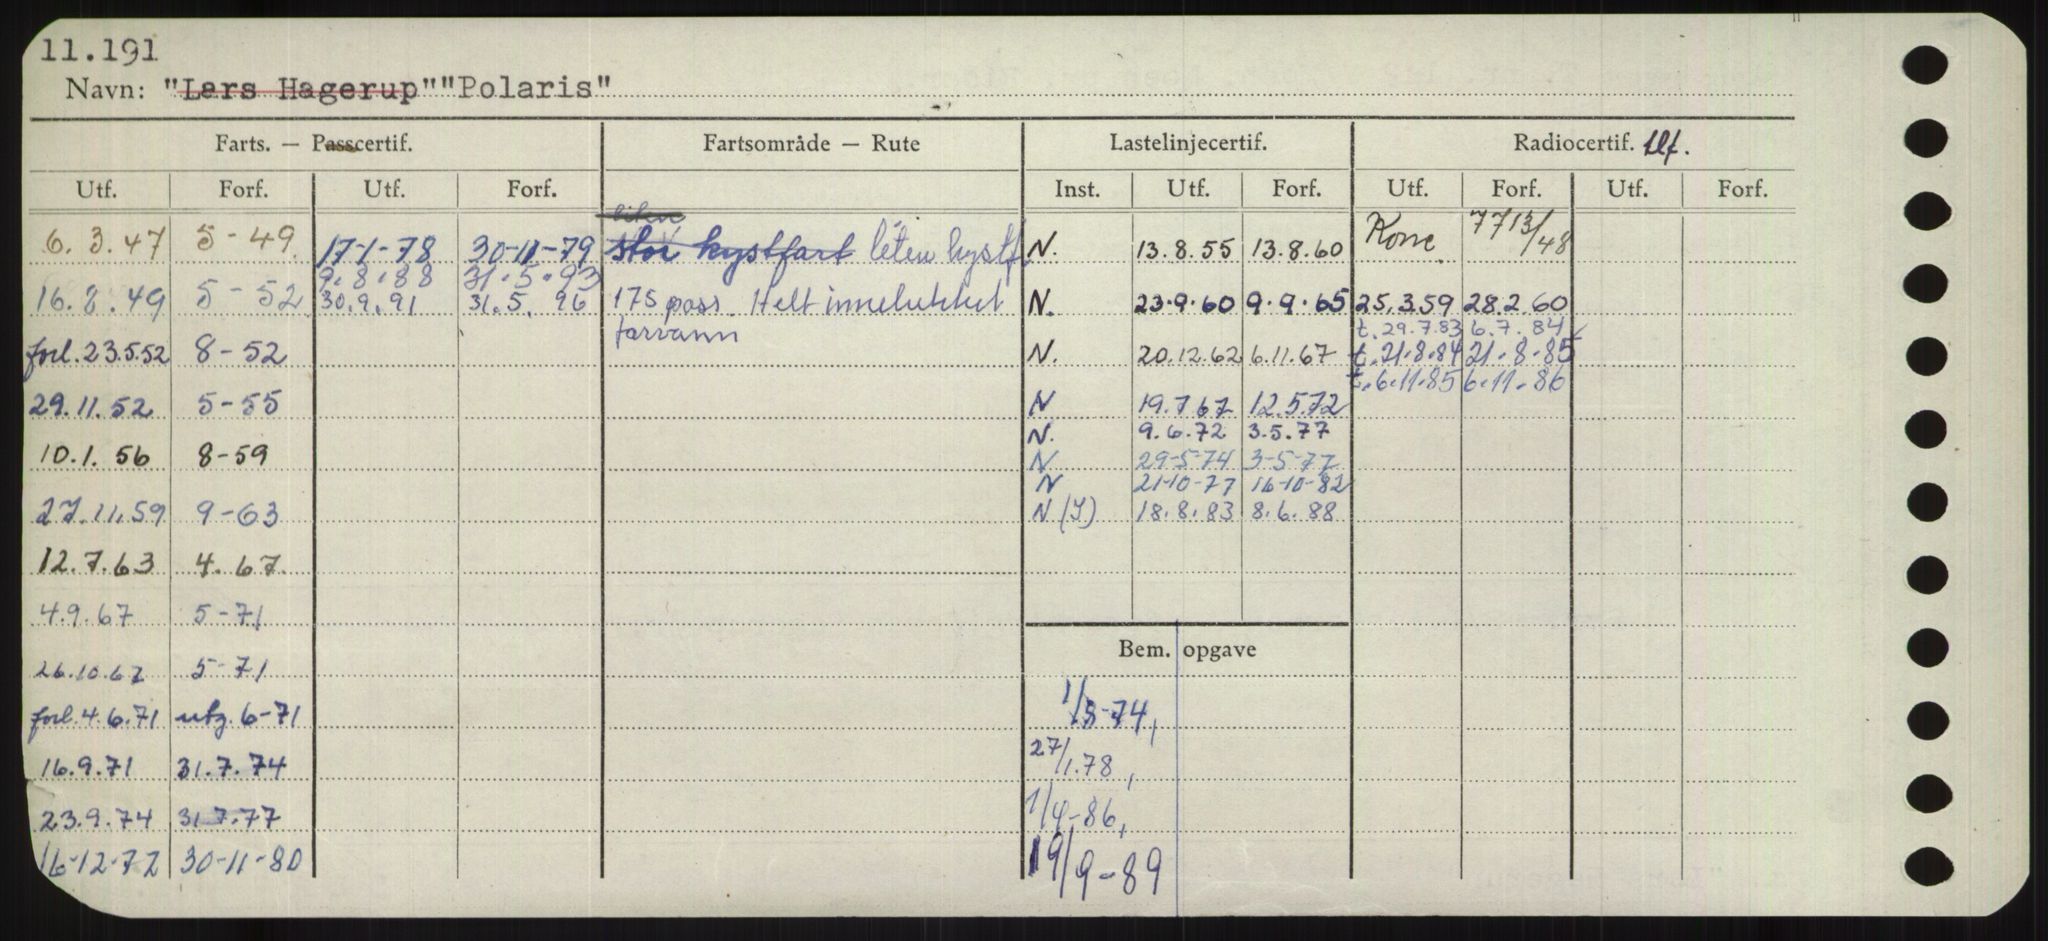 11.191
Navn: "Lars Hagerup""Polaris"
Farts. — Passcertif. Fartsområde — Rute Lastelinjecertif. Radiocertif. tlf.
Utf. Forf. Utf. Forf. Inst. Utf. Forf. Utf. Forf. Utf. Forf.
liten
6.3.47 5-49 17-1-78 30-11-79 stor kystfart liten kystf N. 13.8.55 13.8.60 13/48
9.8.88 31.5.93
16.8.49 5-52 30.9.91 31.5.96 175 pass. Helt innelukket N. 23.9.60 9.9.65 25.3.59 28.2.60
farvann t. 29.7.83 6.7.84
forl. 23.5.52 8-52 N. 20.12.62 6.11.67 t. 21.8.84 21.8.85
t. 6.11.85 6.11.86
29.11.52 5-55 N 19.7.67 12.5.72
N. 9.6.72 3.5.77
10.1.56 8-59 N 29-5-74 3-5-77
N 21-10-77 16-10-82
27.11.59 9-63 N (I) 18.8.83 8.6.88
12.7.63 4.67
4.9.67 5-71
Bem. opgave
26.10.67 5-71
forl. 4.6.71 utg. 6-71 1/3-74,
16.9.71 31.7.74 27/1.78,
23.9.74 31.7.77 1/4-86,
16-12-77 30-11-80 19/9-89